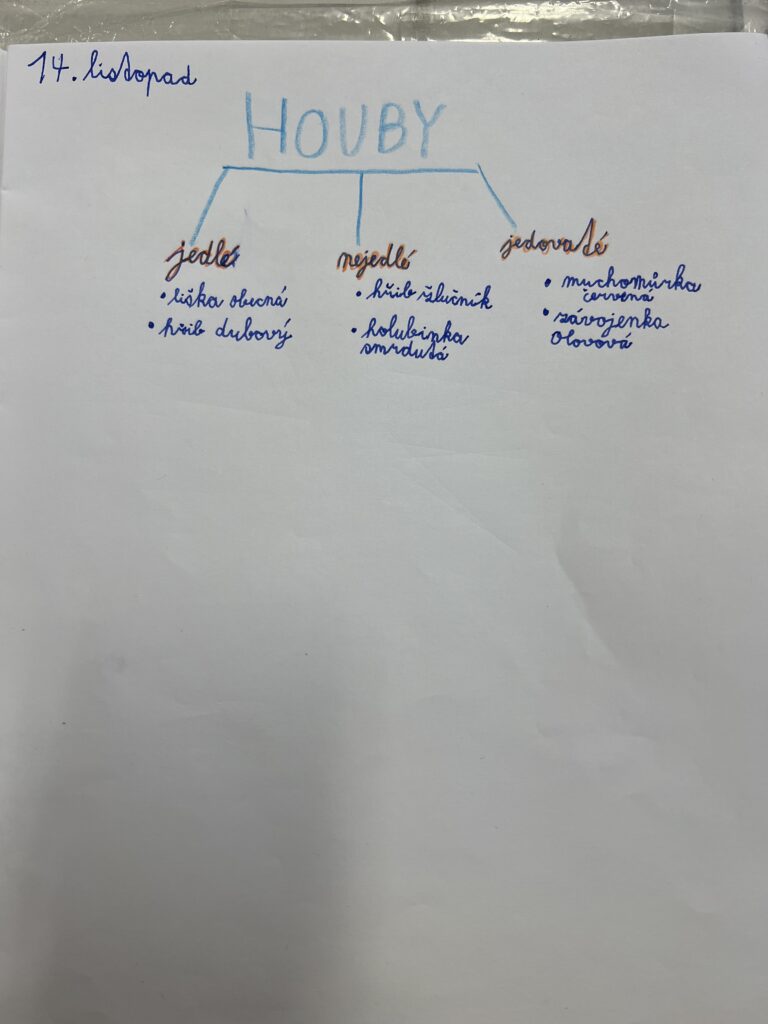 14. listopad
HOUBY
jedlé
• liška obecná
• hřib dubový
nejedlé
• hřib žlučník
• holubinka
smrdutá
jedovaté
• muchomůrka
červená
• závojenka
Olovová